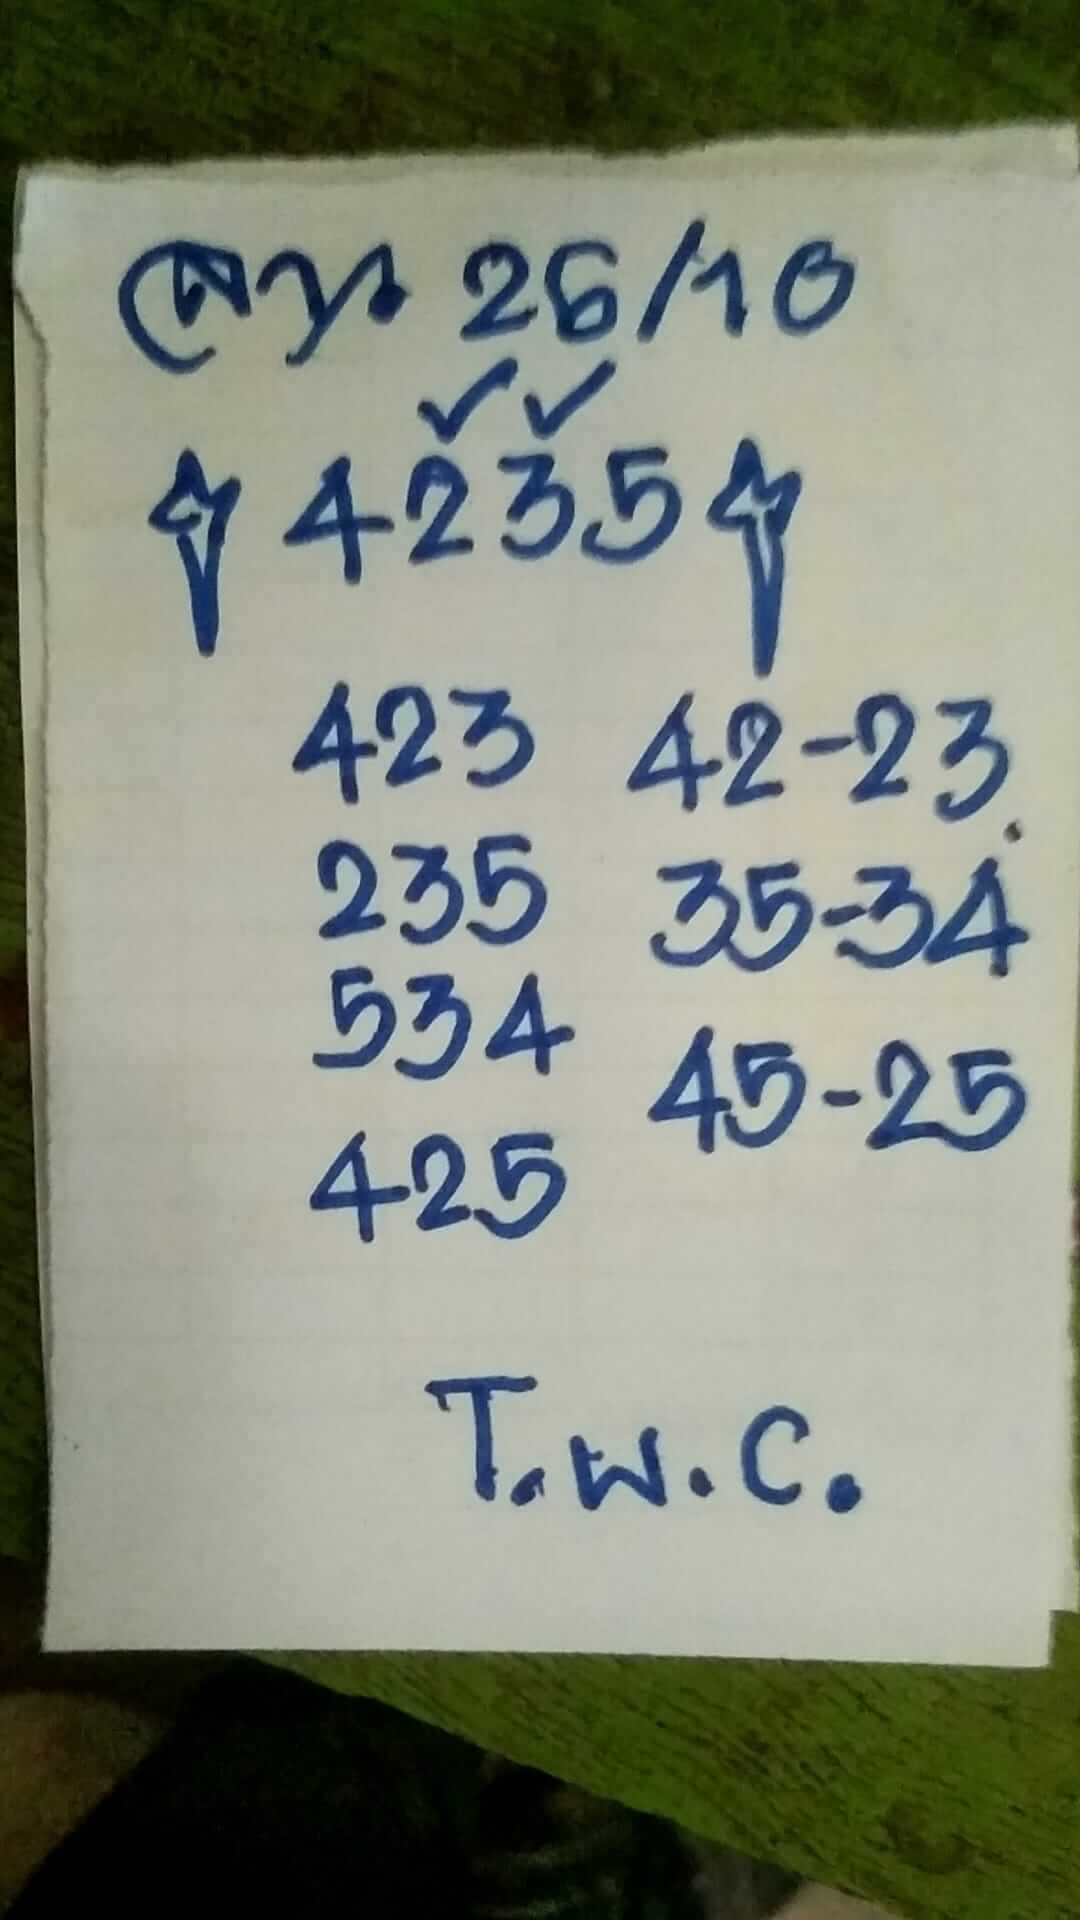 26/10
4235
423 42-23
235 35-34
534
45-25
425
T.พ.C.